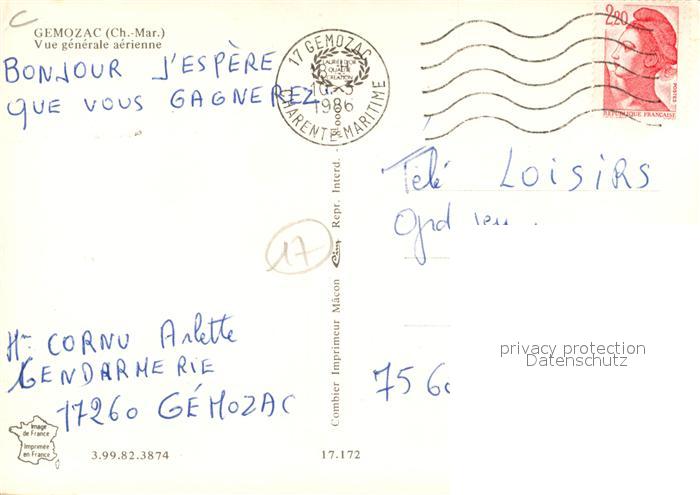 C
GEMOZAC (Ch.-Mar.)
Vue générale aérienne
BONJOUR J'ESPÈRE
QUE VOUS GAGNEREZ
17 GEMOZAC
1986
CHARENTE-MARITIME
2,20
POSTES
REPUBLIQUE FRANÇAISE
Télé LOISIRS
17
75 60
Combier Imprimeur Mâcon Cim Repr. Interd.
privacy protection
Datenschutz
CORNU Arlette
GENDARMERIE
17260 GÉMOZAC
Image
de France
Imprimée
en France
3.99.82.3874
17.172